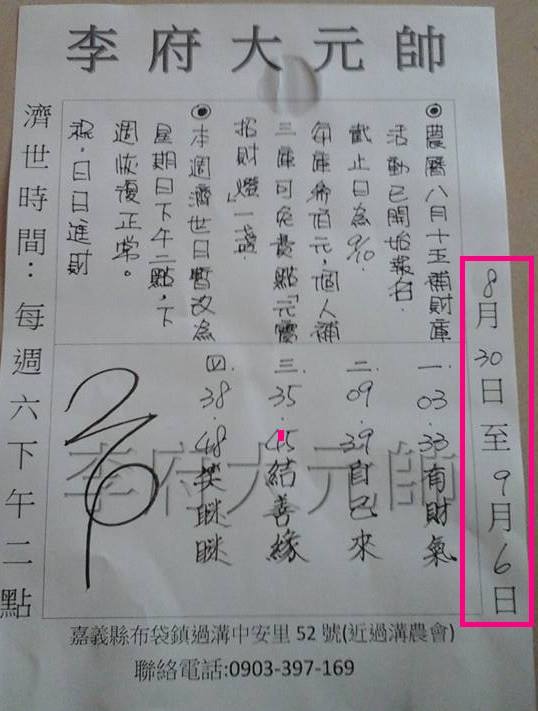 李府大元帥
8月30日至9月6日
⦿農曆八月十五補財庫
活動已開始報名.
截止日為9/10.
每庫參佰元,個人補
三庫可免費點「元寶
招財燈」一盞
⦿本週濟世日暫改為
星期日下午二點,下
週恢復正常。
祝.日日進財
一.03.33有財氣
二.09.39自己來
三.35.45結善緣
四.38.48笑瞇瞇
李府大元帥
濟世時間:每週六下午二點
嘉義縣布袋鎮過溝中安里 52 號(近過溝農會)
聯絡電話:0903-397-169